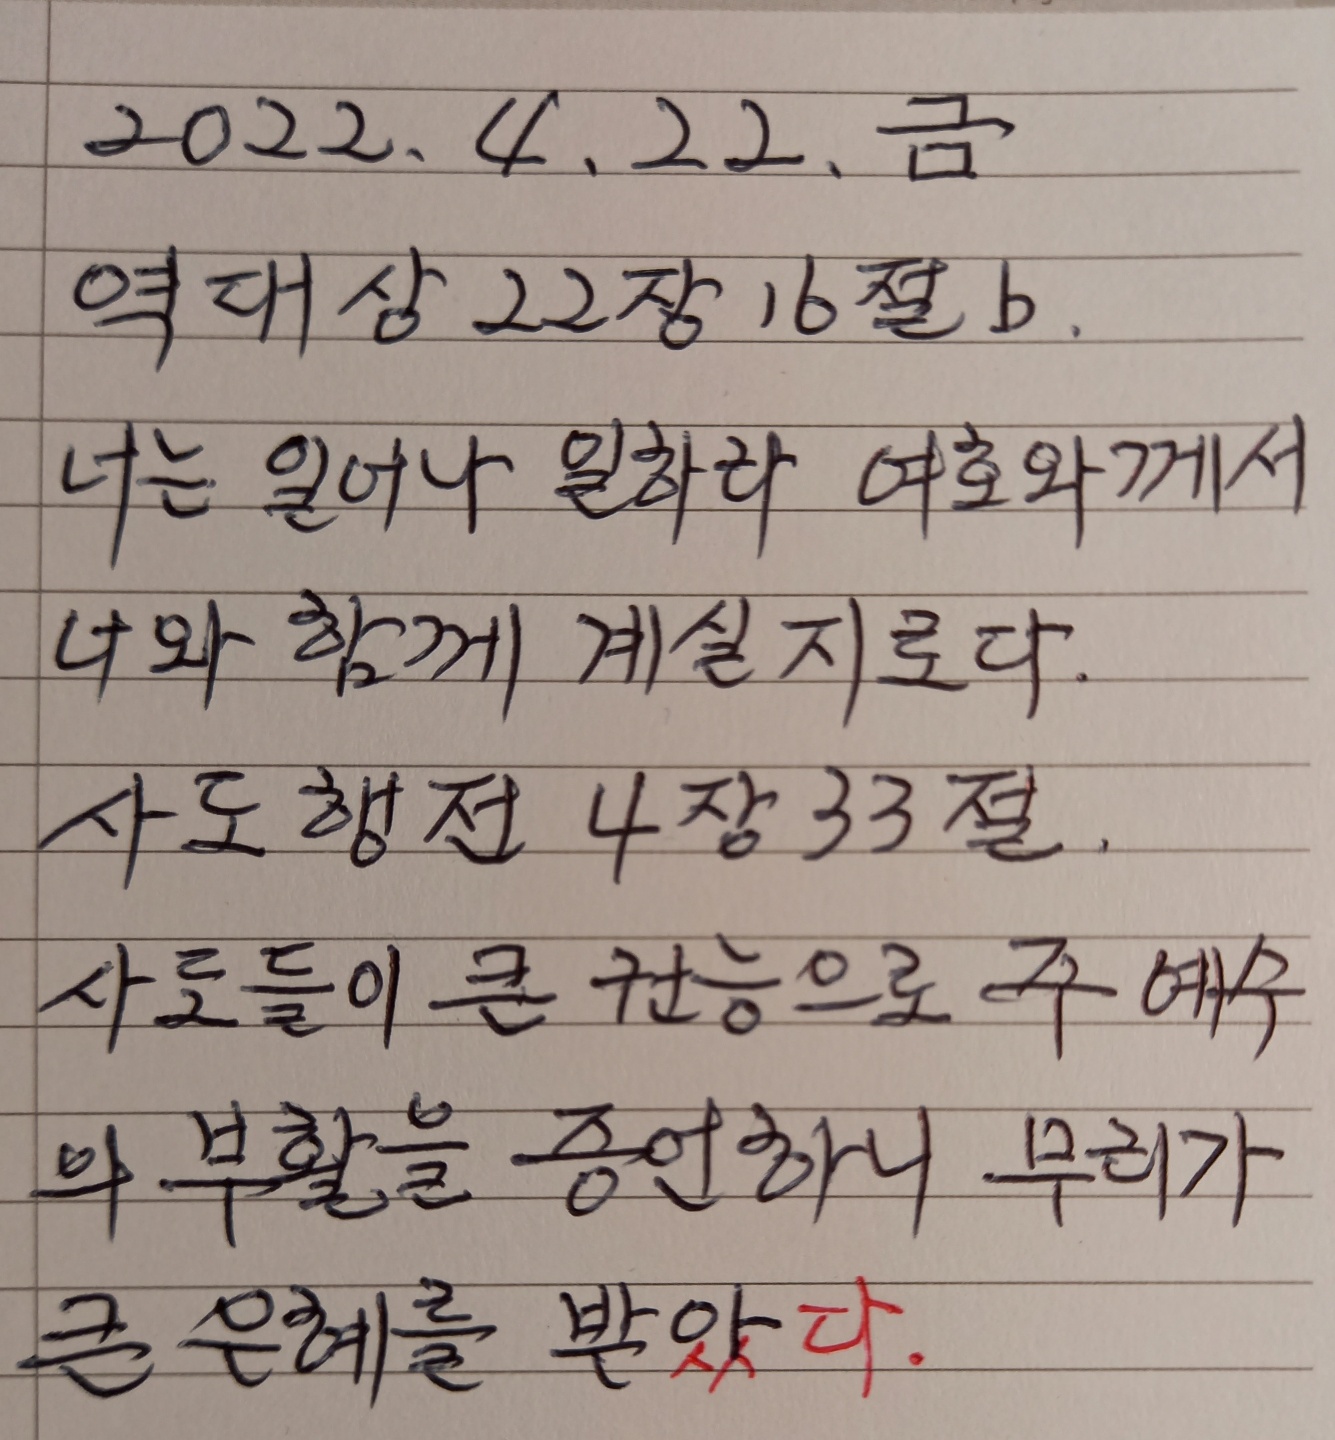 2022. 4. 22. 금
역대상 22장 16절 b.
너는 일어나 일하라 여호와께서
너와 함께 계실지로다.
사도행전 4장 33절.
사도들이 큰 권능으로 주 예수
의 부활을 증언하니 무리가
큰 은혜를 받았다.